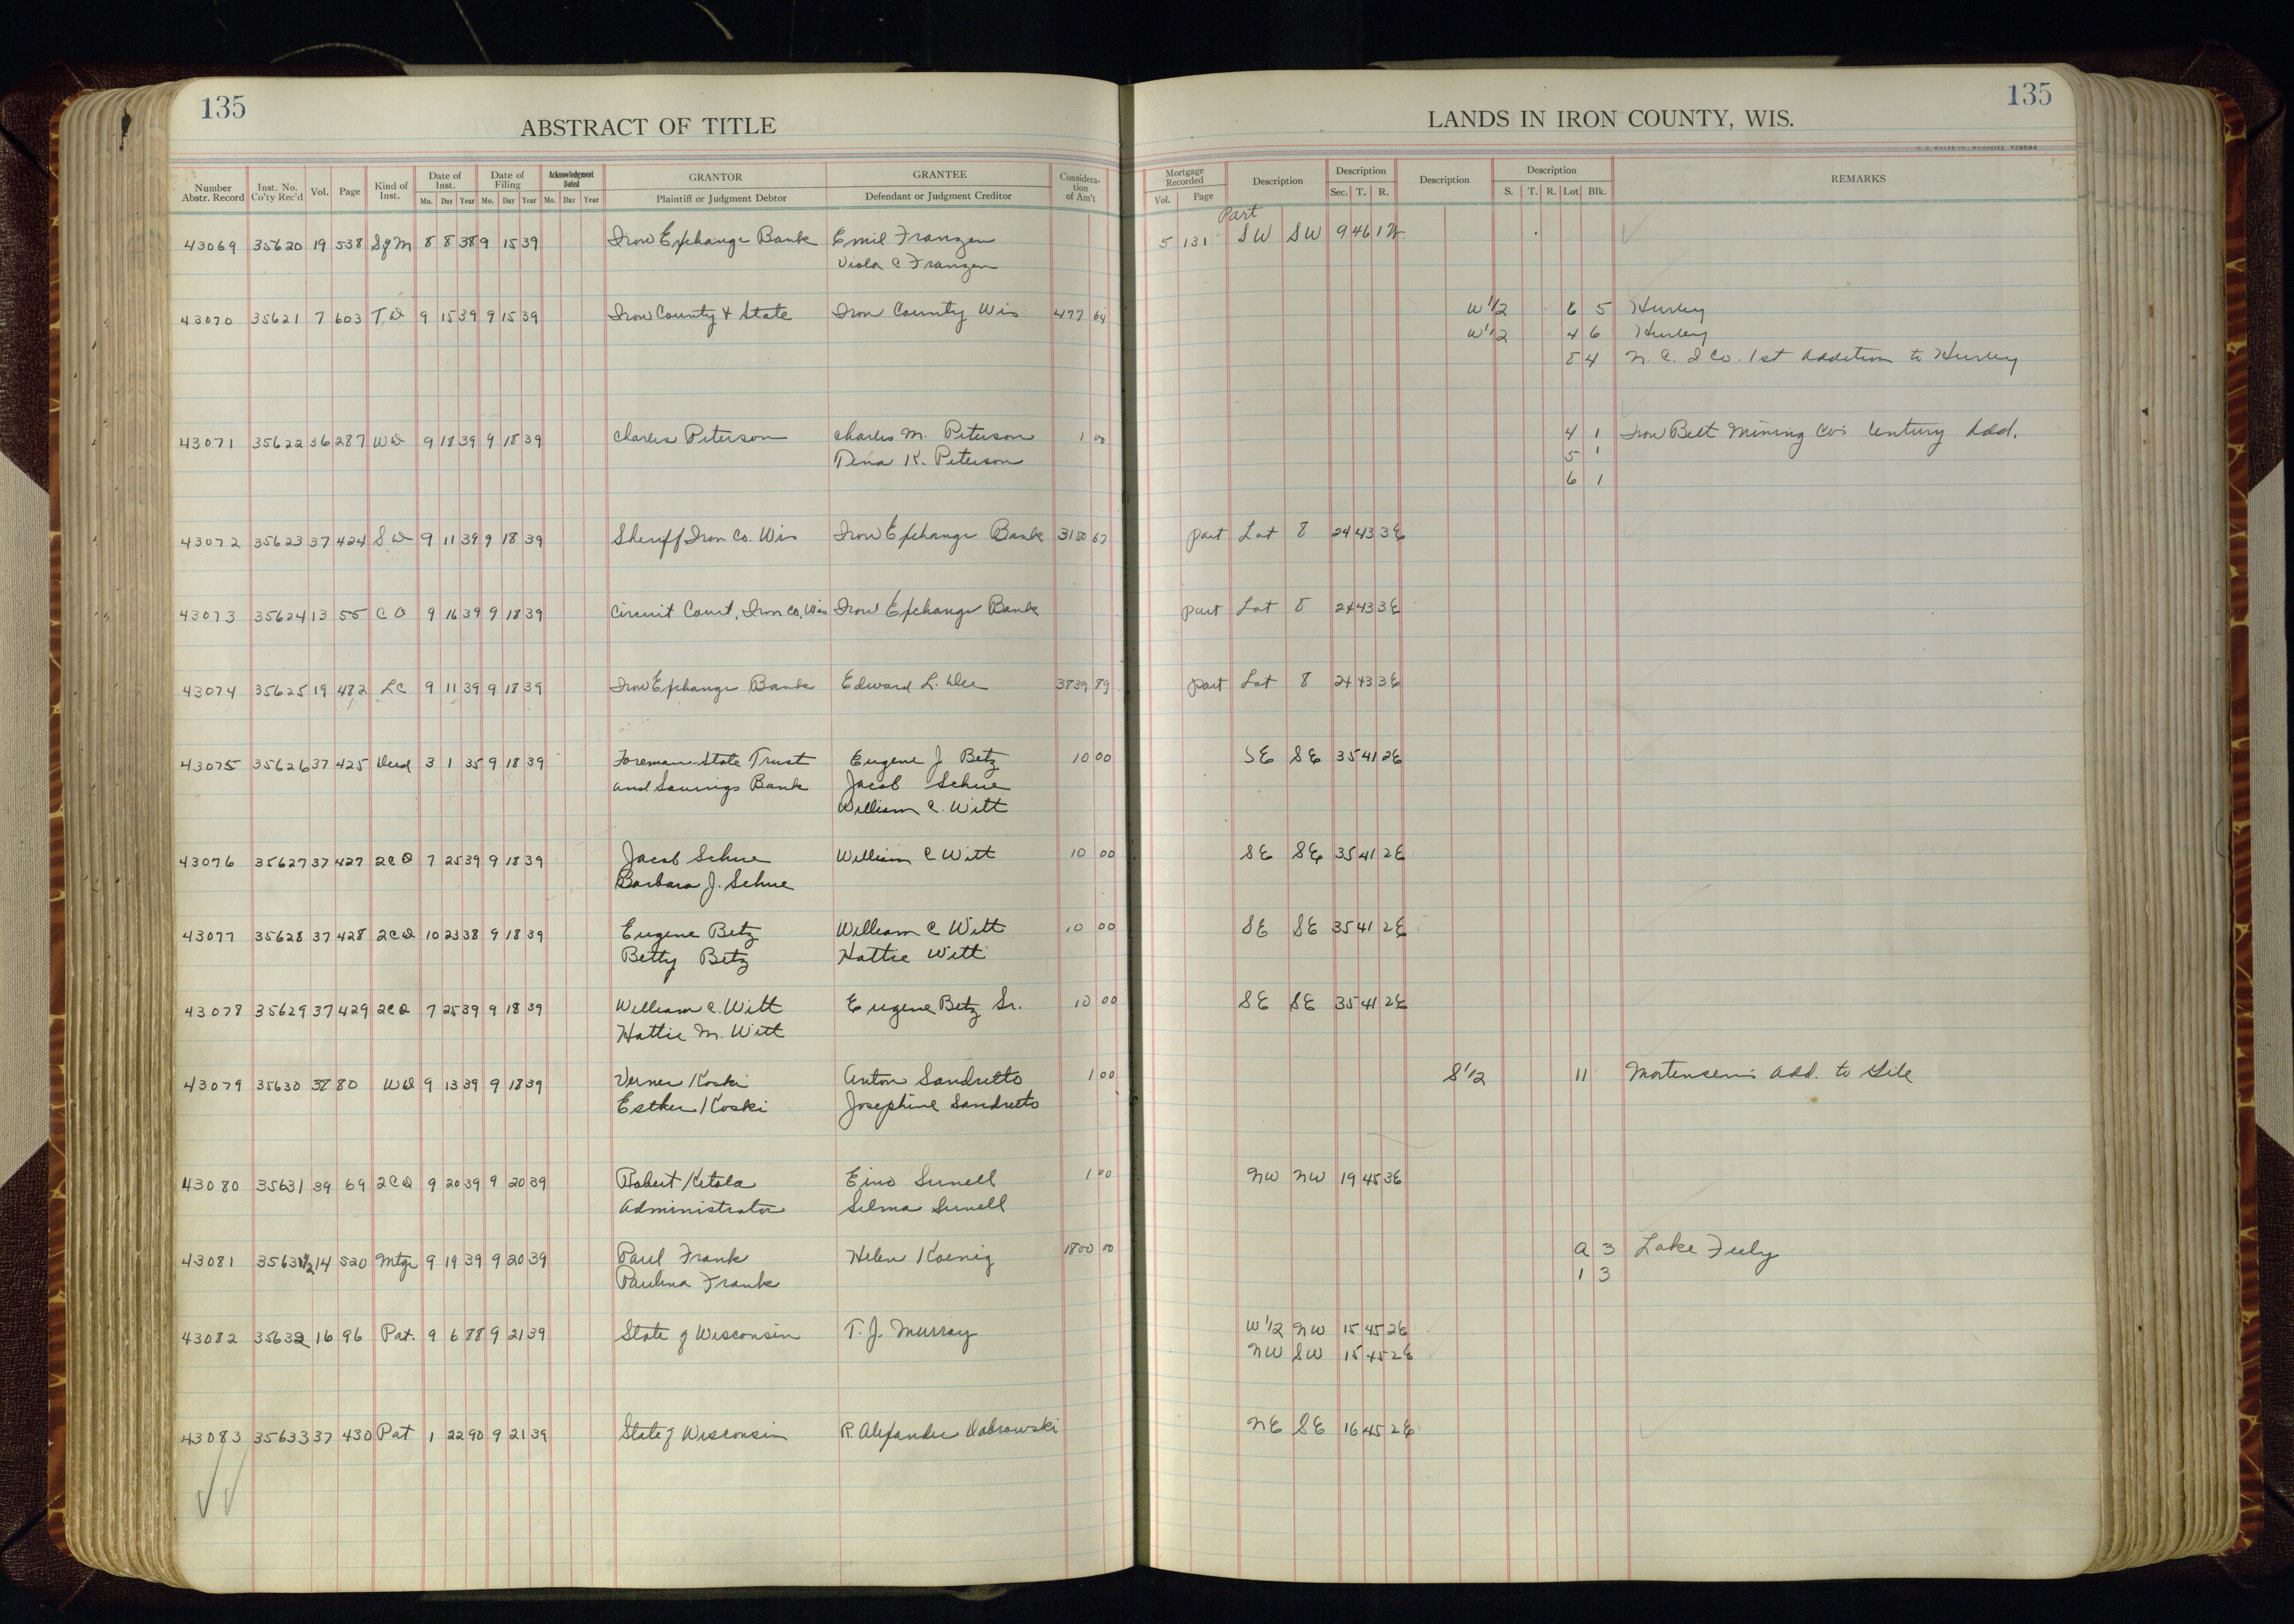 135
ABSTRACT OF TITLE
Number Abstr. Record Inst. No. Co'ty Rec'd Vol. Page Kind of Inst. Date of Inst. Mo. Day Year Date of Filing Mo. Day Year Acknowledgment Dated Mo. Day Year GRANTOR Plaintiff or Judgment Debtor GRANTEE Defendant or Judgment Creditor Consideration of Am't
LANDS IN IRON COUNTY, WIS.
135
H. C. MILLER CO., MILWAUKEE
Mortgage Recorded Vol. Page Description Description Sec. T. R. Description Description S. T. R. Lot Blk. REMARKS
Part
43069 35620 19 538 S of M 8 8 38 9 15 39 Iron Exchange Bank Emil Franzen 5 131 SW SW 9 46 1W
Viola C Franzen
43070 35621 7 603 TD 9 15 39 9 15 39 Iron County & State Iron County Wis 477 64 W 1/2 6 5 Hurley
W 1/2 4 6 Hurley
8 4 N. C. I Co. 1st Addition to Hurley
43071 35622 36 287 WD 9 18 39 9 18 39 Charles Peterson Charles M. Peterson 1 00 4 1 Iron Belt Mining Co's Century Add.
Tena K. Peterson 5 1
6 1
43072 35623 37 424 SD 9 11 39 9 18 39 Sheriff Iron Co. Wis Iron Exchange Bank 3150 67 Part Lot 8 24 43 3E
43073 35624 13 55 CO 9 16 39 9 18 39 Circuit Court, Iron Co, Wis Iron Exchange Bank Part Lot 8 24 43 3E
43074 35625 19 482 LC 9 11 39 9 18 39 Iron Exchange Bank Edward L. 3839 89 Part Lot 8 24 43 3E
43075 35626 37 425 Deed 3 1 35 9 18 39 Foreman-State Trust Eugene J. Betz 10 00 SE SE 35 41 2E
and Savings Bank Jacob Schue
William C. Witt
43076 35627 37 427 2CD 7 25 39 9 18 39 Jacob Schue William C Witt 10 00 SE SE 35 41 2E
Barbara J. Schue
43077 35628 37 428 2CD 10 23 38 9 18 39 Eugene Betz William C Witt 10 00 SE SE 35 41 2E
Betty Betz Hattie Witt
43078 35629 37 429 2CD 7 25 39 9 18 39 William C. Witt Eugene Betz Sr. 10 00 SE SE 35 41 2E
Hattie M. Witt
43079 35630 38 80 WD 9 13 39 9 18 39 Verner Koski Anton Sandretto 1 00 S 1/2 11 Mortensen's Add. to Gile
Esther Koski Josephine Sandretto
43080 35631 39 69 2CD 9 20 39 9 20 39 Robert Ketola Eino Sunell 1 00 NW NW 19 45 3E
Administrator Selma Sunell
43081 35631 1/2 14 520 Mtge 9 19 39 9 20 39 Paul Frank Helen Koenig 1800 00 a 3 Lake Fuly
Paulina Frank 1 3
43082 35632 16 96 Pat. 9 6 88 9 21 39 State of Wisconsin T. J. Murray W 1/2 NW 15 45 2E
NW SW 15 45 2E
43083 35633 37 430 Pat 1 22 90 9 21 39 State of Wisconsin R. Alexander Dabrowski NE SE 16 45 2E